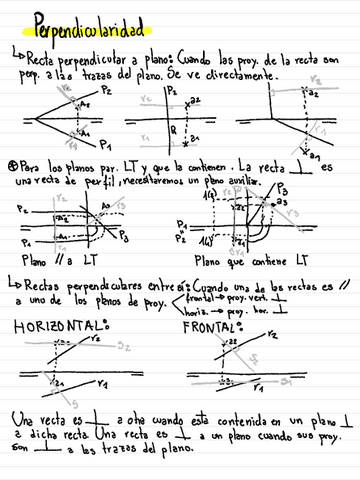 Perpendicularidad
↳ Recta perpendicular a plano: Cuando las proy. de la recta son
perp. a las trazas del plano. Se ve directamente.
r2 P2 A2 A1 r1 P1
P2 r2 a2 R r1 a1 P1
a2 r1 a1
⊕ Para los planos par. LT y que la contienen. La recta ⊥ es
una recta de perfil, necesitaremos un plano auxiliar.
P2 P1 A2 A1 A3 r3 P3
1(2) P1 P2 1(1) P3 a3 r3
Plano // a LT
Plano que contiene LT
↳ Rectas perpendiculares entre sí: Cuando una de las rectas es //
a uno de los planos de proy.
frontal → proy. vert. ⊥
horiz. → proy. hor. ⊥
HORIZONTAL:
FRONTAL:
r2 S2 r1 S
r2 S2 S1 r1
Una recta es ⊥ a otra cuando está contenida en un plano ⊥
a dicha recta. Una recta es ⊥ a un plano cuando sus proy.
son ⊥ a las trazas del plano.